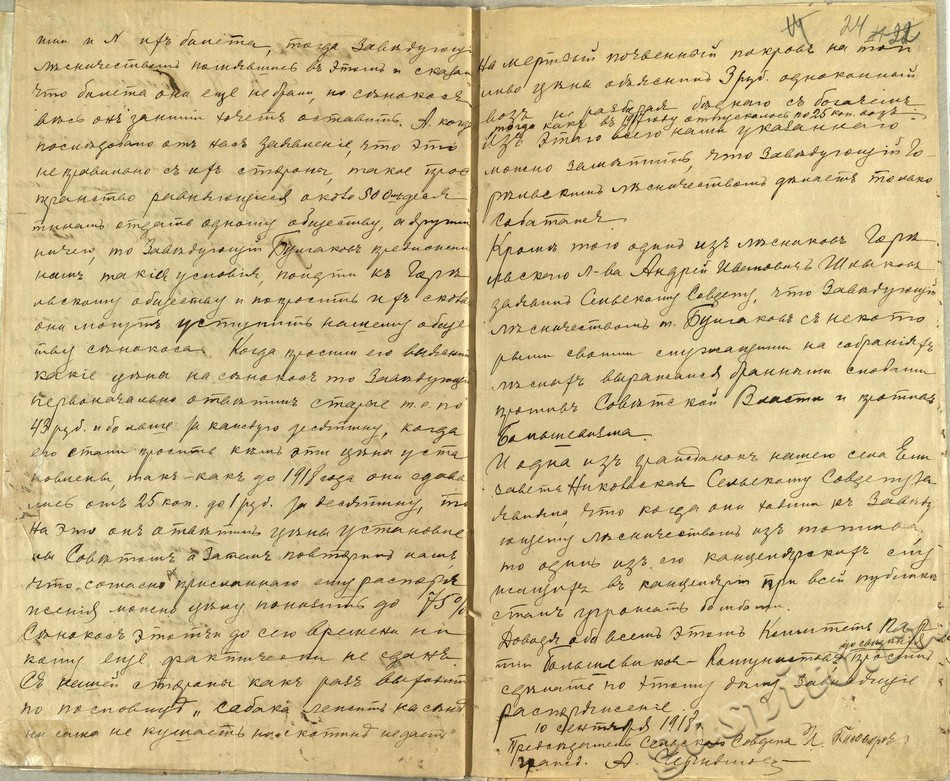 тии и N ихъ билета, тогда Завѣдующій
лѣсничествомъ помявшись въ этомъ и сказалъ
что билета они еще не брали, но сѣнокосъ
весь онъ за ними хочетъ оставить. А когда
последовало отъ насъ заявленіе, что это
не правильно съ ихъ стороны, такое прос
транство равняющееся около 50 десят
тинамъ отдать одному обществу, а другимъ
ничего, то Завѣдующій Булгаковъ предложилъ
намъ такіе условія, пойдти къ Горѣ
льскому обществу и попросить ихъ сколько
они могутъ уступить нашему обще
тву сѣнокоса. Когда просили его выяснить
какіе цѣны на сѣнокосъ то Завѣдующій
первоначально отвѣтилъ старые т.е. по
43 руб. и больше за каждую десятину, когда
его стали просить кѣмъ эти цѣны уста
новлены, такъ-какъ до 1918 года они сдава
лись отъ 25 коп. до 1 руб. за десятину, то
на это онъ отвѣтилъ цѣны установле
ны Совѣтомъ а затѣмъ повторилъ намъ
что согласно присланнаго ему распоря
женія можно цѣну понизить до 75%
Сѣнокосъ этотъ до сего времени ни
кому еще фактически не сданъ.
Съ нашей стороны какъ разъ выходитъ
по пословицѣ „собака лежитъ на сѣнѣ
ни сама не кушаетъ и скотинѣ не даетъ"
24
На мертвый почвенный покровъ на топ
ливо цѣна объяснилъ 3 руб. одноконный
возъ не разбирая бѣднаго съ богачемъ
тогда какъ въ 1917 году отпускалось по 25 коп. возъ.
Изъ этого всего нами указаннаго
можно замѣтить, что Завѣдующій Го
рѣльскимъ лѣсничествомъ дѣлаетъ только
саботажъ
Кромѣ того одинъ изъ лѣсниковъ Горѣ
льскаго Л-ва Андрей Ивановичъ Шлыковъ
заявилъ Сельскому Совдепу, что Завѣдующій
лѣсничествомъ т. Булгаковъ съ некото
рыми своими служащими на собраніяхъ
лѣсныхъ выражался бранными словами
противъ Совѣтской Власти и противъ
Большевизма.
И одна изъ гражданокъ нашего села Ели
завета Никольская Сельскому Совдепу за
явила, что когда они ходили къ Завѣд
ующему лѣсничествомъ изъ топлива,
то одинъ изъ его канцелярскихъ слу
жащихъ въ канцеляріи при всей публики
сталъ угрожать бомбами.
Доводя обо всемъ этомъ Комитетъ Пар
тіи большевиков-Комунистовъ до свѣдѣнія просимъ
сдѣлать по этому дѣлу Завѣдующіе
распоряженіе.
10 сентября 1918 г.
Предсѣдатель Сельскаго Совдепа
А.